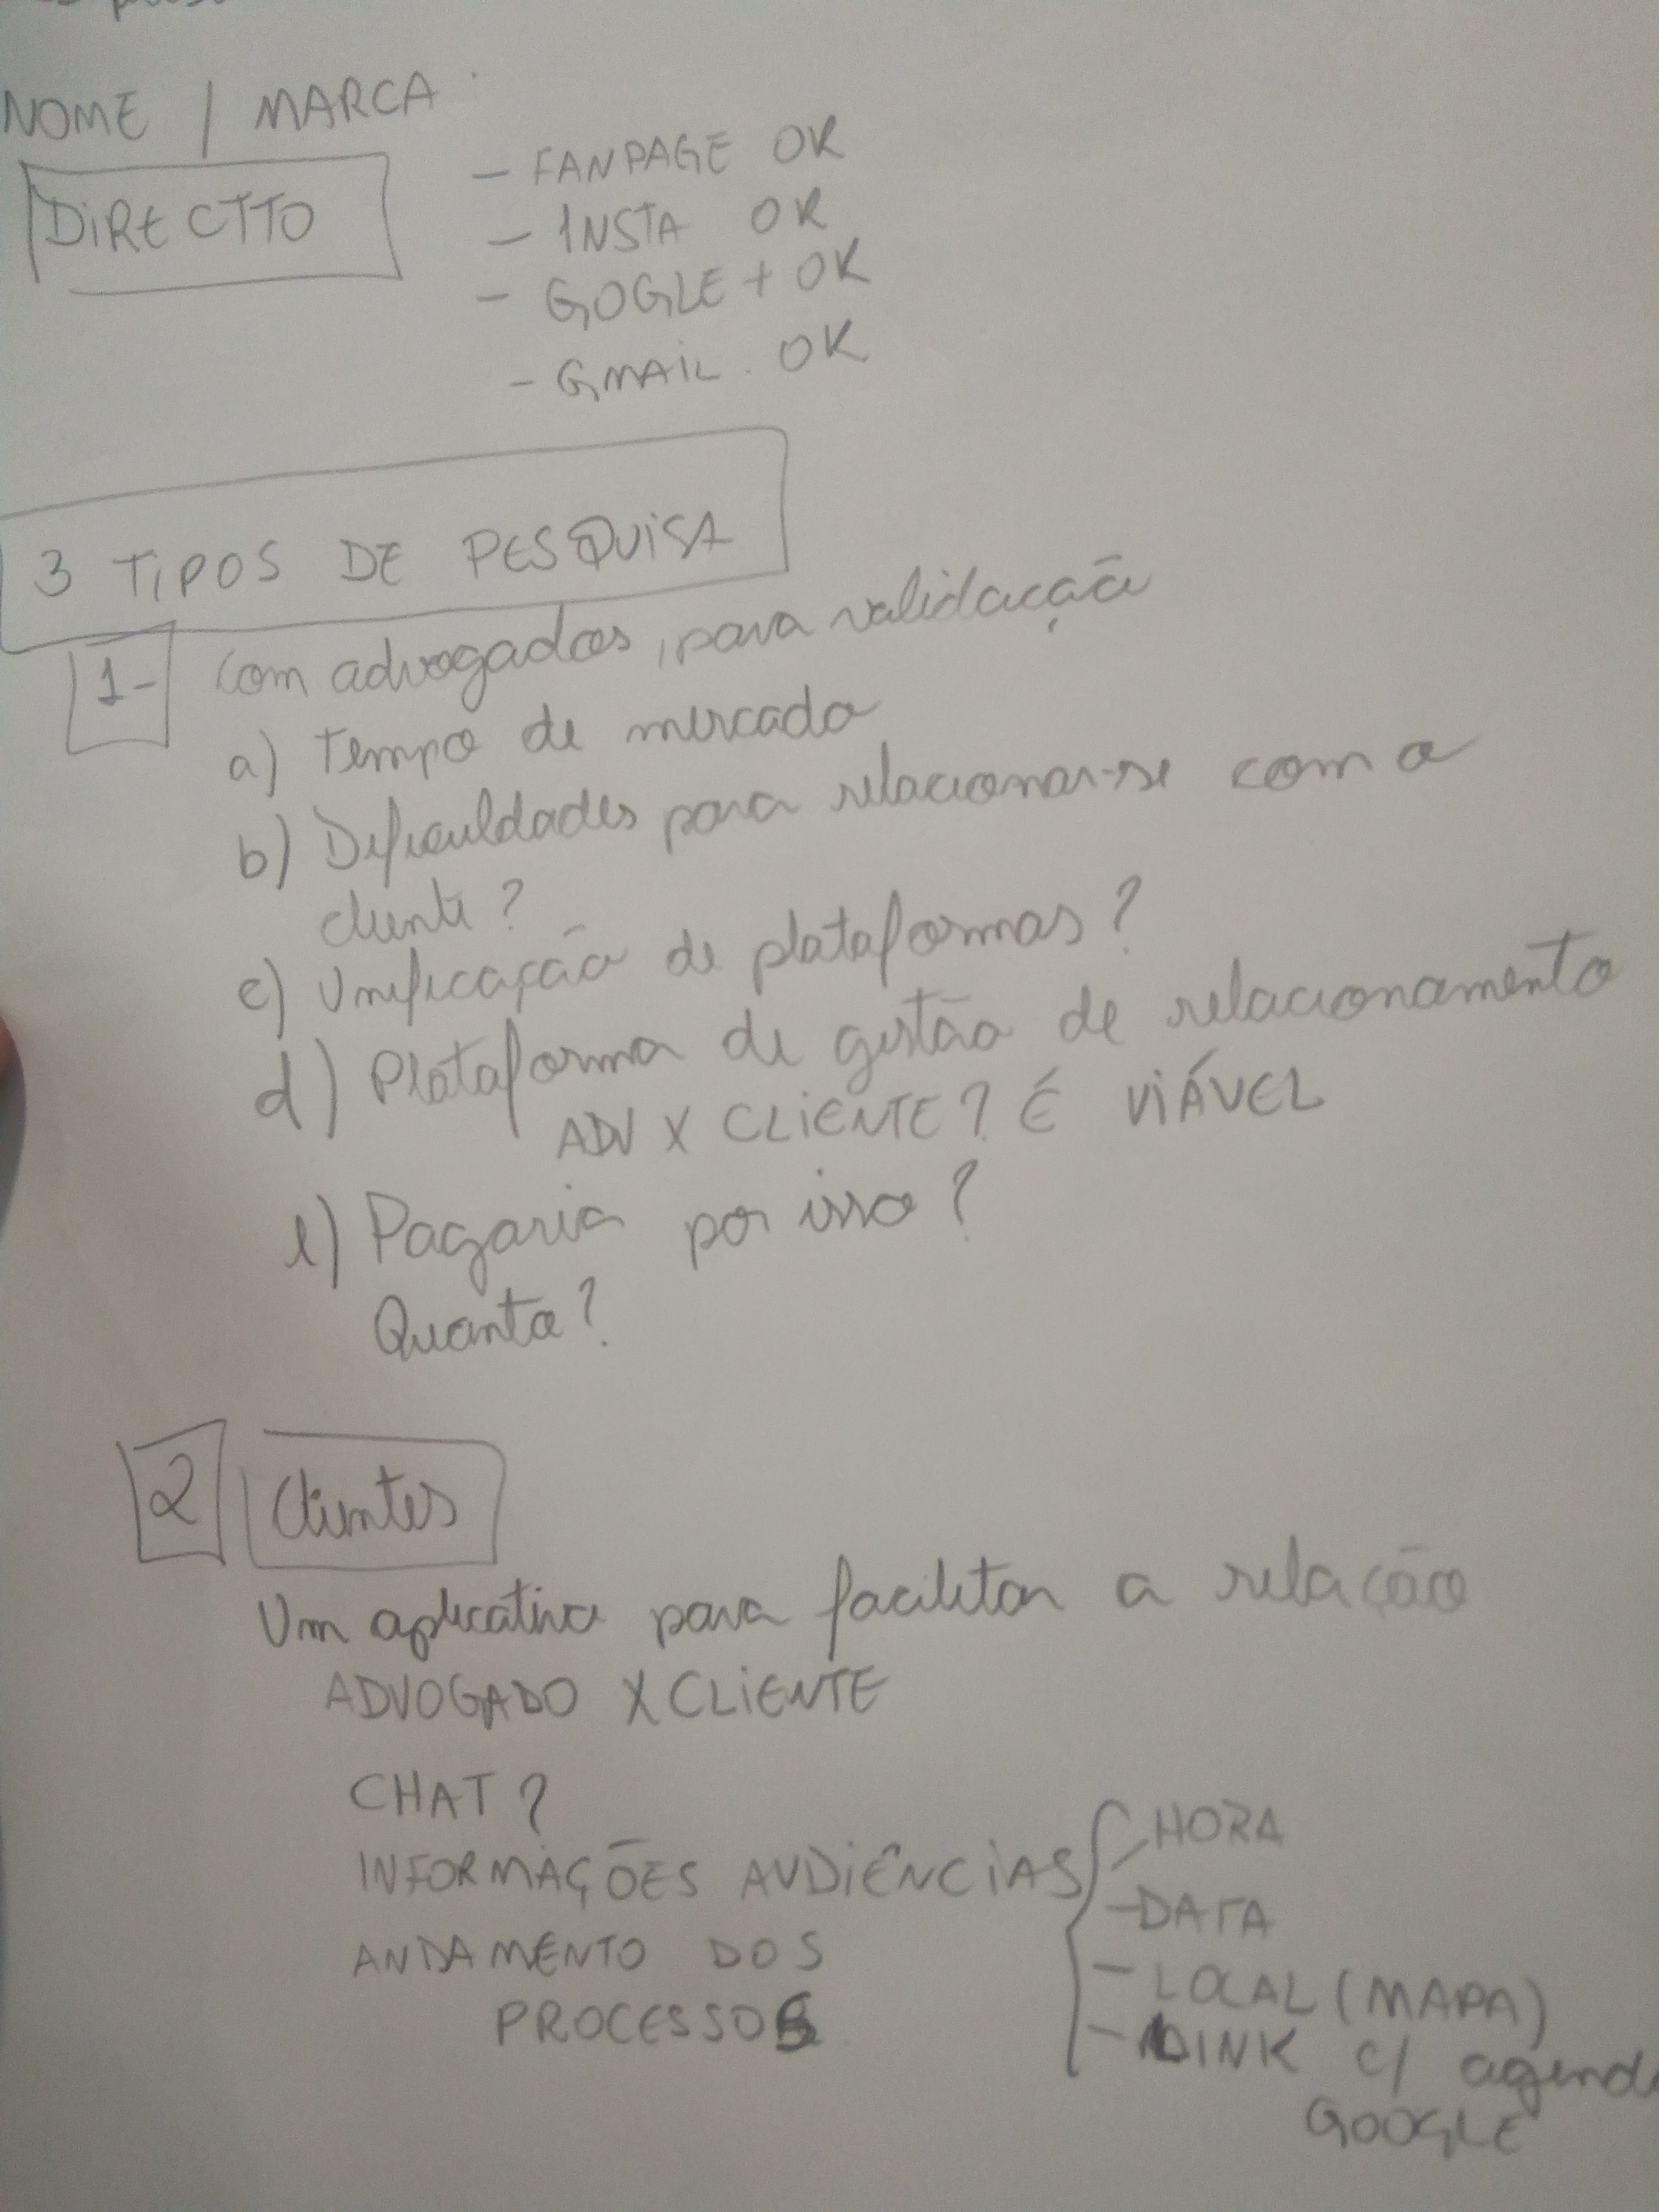 NOME / MARCA
DIRECTTO
- FANPAGE OK
- INSTA OK
- GOGLE + OK
- GMAIL . OK
3 TIPOS DE PESQUISA
1- Com advogados, para validação
a) Tempo de mercado
b) Dificuldades para relacionar-se com o
cliente?
c) Unificação de plataformas?
d) Plataforma de gestão de relacionamento
ADV X CLIENTE? É VIÁVEL
e) Pagaria por isso?
Quanto?
2 Clientes
Um aplicativo para facilitar a relação
ADVOGADO X CLIENTE
CHAT?
INFORMAÇÕES AUDIÊNCIAS
- HORA
- DATA
- LOCAL (MAPA)
- LINK c/ agenda
GOOGLE
ANDAMENTO DOS
PROCESSOS